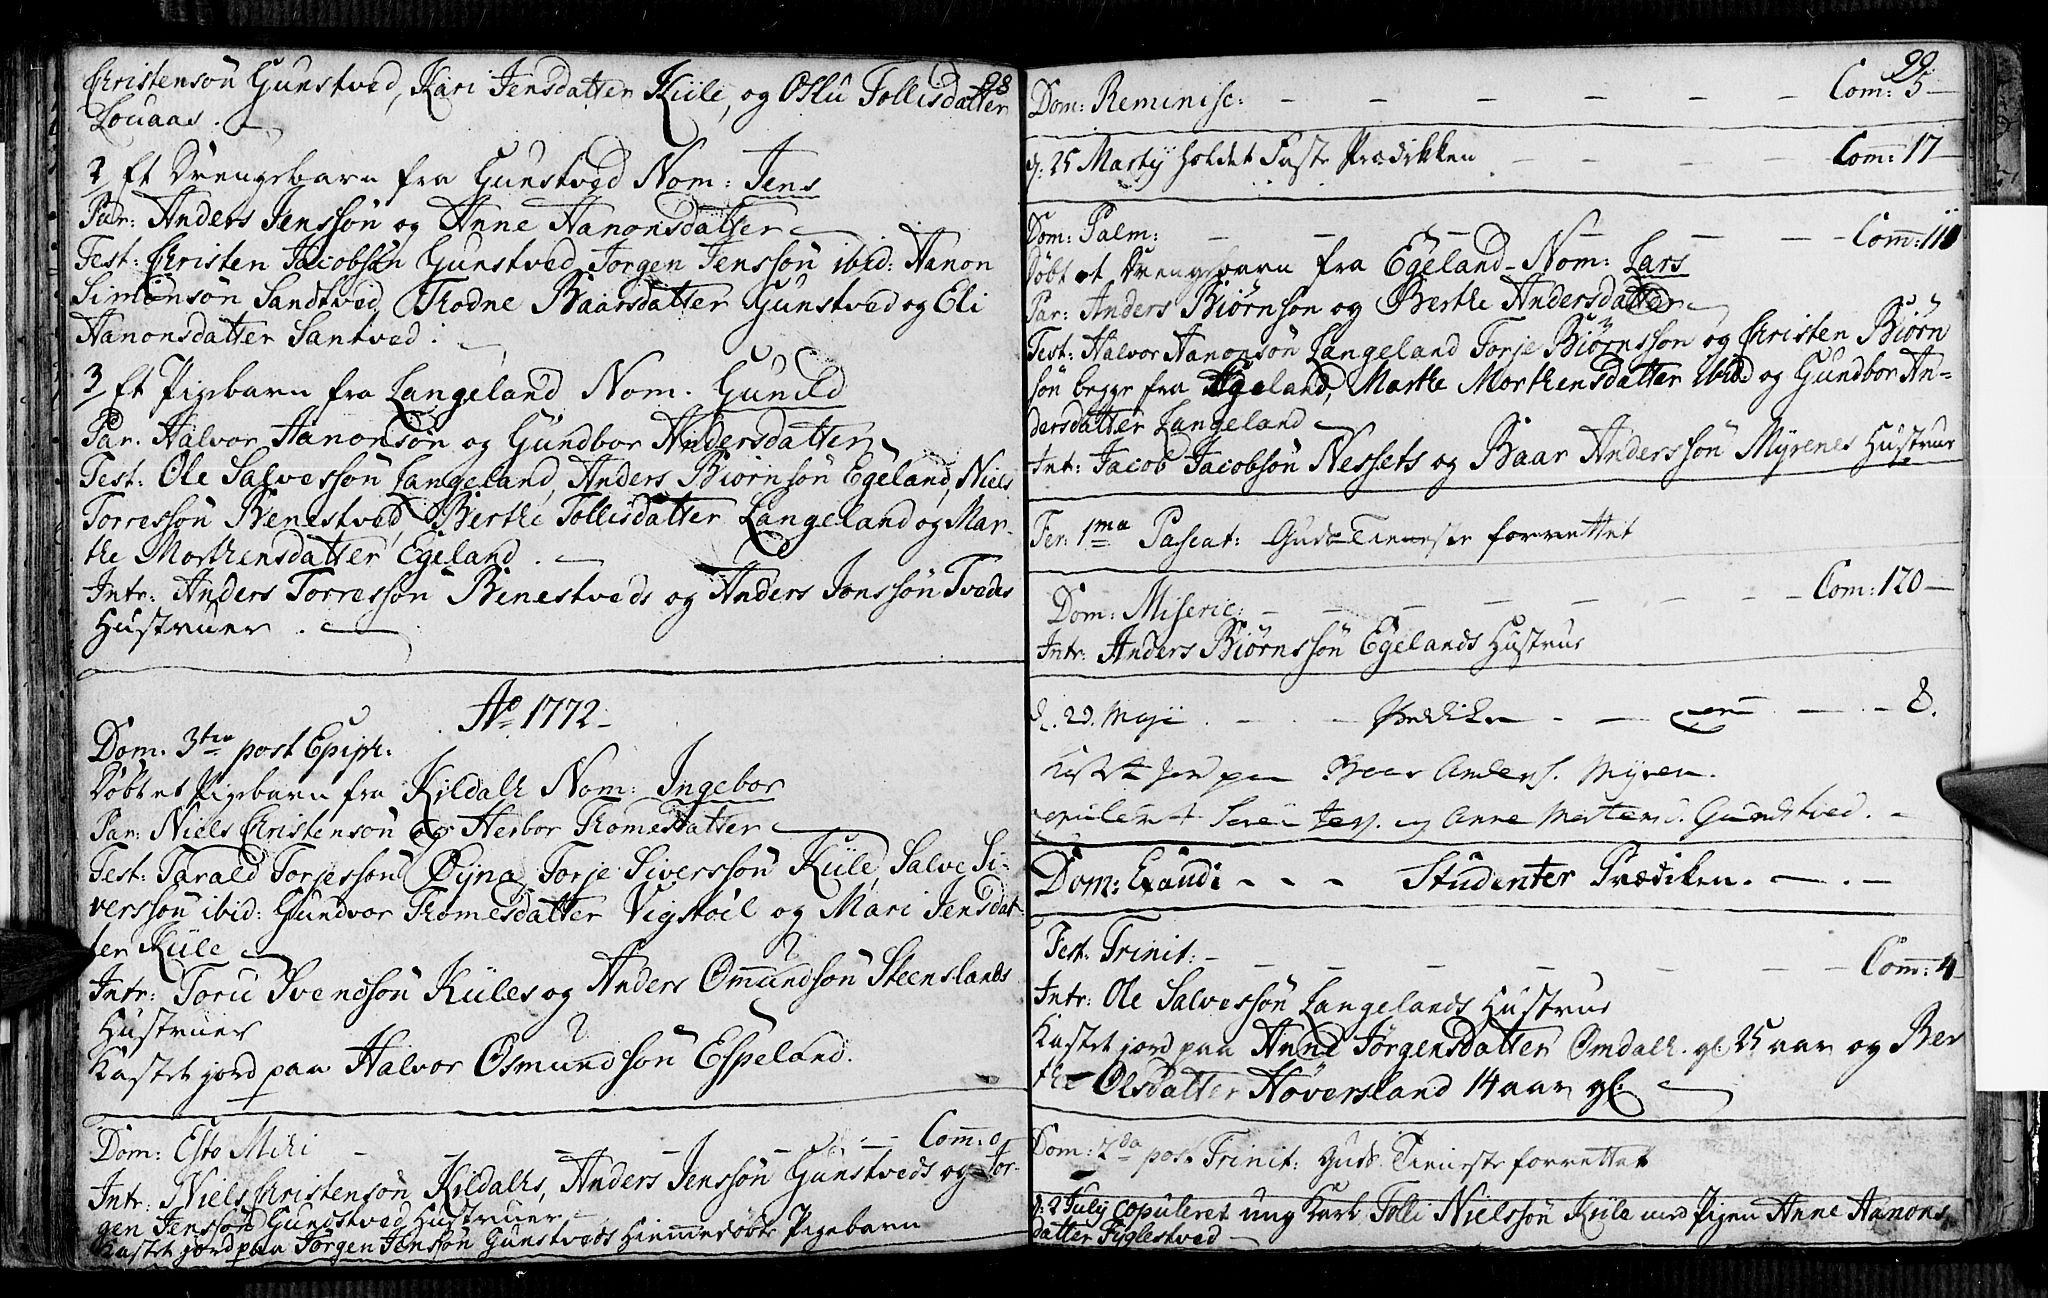 98
Christensøn Gunstved, Kari Jensdatter Kùle, og Oslù Tollisdatter
Louaas.
2 Et Drengebarn fra Gunstved Nom: Jens
Par: Anders Jenssøn og Anne Aanonsdatter
Test: Christen Jacobsøn Gunstved Jørgen Jenssøn ibid: Aanon
Simonsøn Santved, Trodne Baarsdatter Gunstved og Eli
Aanonsdatter Santved.
3 Et Pigebarn fra Langeland Nom. Gunild
Par. Halvor Aanonsøn og Gundbor Andersdatter
Test: Ole Salvessøn Langeland, Anders Biørnsøn Egeland, Niels
Torressøn Benestved Berthe Tollisdatter Langeland og Mar-
the Morthensdatter Egeland.
Intr: Anders Torressøn Benestveds og Anders Jonssøn Tvedes
Hustruer.
Ao 1772
Dom: 3tia post Epiph:
Døbt et Pigebarn fra Kildalh Nom: Ingebor
Par: Niels Christensøn og Herbor Tromesdatter
Test: Tarald Torjessøn Øyna, Torje Siverssøn Kùle, Salve Si-
verssøn ibid: Gundvor Tromesdatter Vigstøil og Mari Jensdat-
ter Kùle
Intr: Toru Svendsøn Kùles og Anders Omundsøn Steenslands
Hustruer
Kastet jord paa Halvor Osmundsøn Espeland.
Dom: Esto Mihi - - - - Com: 0
Intr: Niels Christensøn Kildalhs, Anders Jenssøn Gunstveds og Jør-
gen Jenssøn Gundstved Hustruer
Kastet jord paa Jørgen Jenssøn Gunstveds Hiemmedøbte Pigebarn
99
Dom: Reminisc: - - - - - - Com: 5
d. 25 Martij holdet Faste Prædikken - - - Com: 17
Dom: Palm: - - - - - - Com: 111
Døbt et Drengebarn fra Egeland Nom: Lars
Par: Anders Biørnsøn og Berthe Andersdatter
Test: Halvor Aanonsøn Langeland Torje Biørnssøn og Christen Biørn
søn begge fra Egeland, Marthe Morthensdatter ibid og Gundbor An-
dersdatter Langeland
Int: Jacob Jacobsøn Nessets og Baar Anderssøn Myrenes Hustruer
Fer: 1ma Pascat: Guds Tieneste forrettet
Dom: Miseric: - - - - - - Com: 120
Intr: Anders Biørnssøn Egelands Hustrue
d. 29. Maji - - Prediken - - Com - - 8.
Kastet Jord paa Baar Anders. Myren.
Copuleret Søren Jens. og Anne Mortensd. Gundstved.
Dom: Exaudi - - - Studenter Prædiken.
Fest: Trinit: - - - - - - Com: 4
Intr: Ole Salvessøn Langelands Hustrue
Kastet jord paa Anne Jørgensdatter Omdalh. gl: 25 aar og Ber
the Olsdatter Høversland 14 aar gl:
Dom: 2da post Trinit: Guds Tieneste forrettet
d. 2 July copuleret ung Karl Tolli Nielssøn Kùle med Pigen Anne Aanons
datter Fyglestved